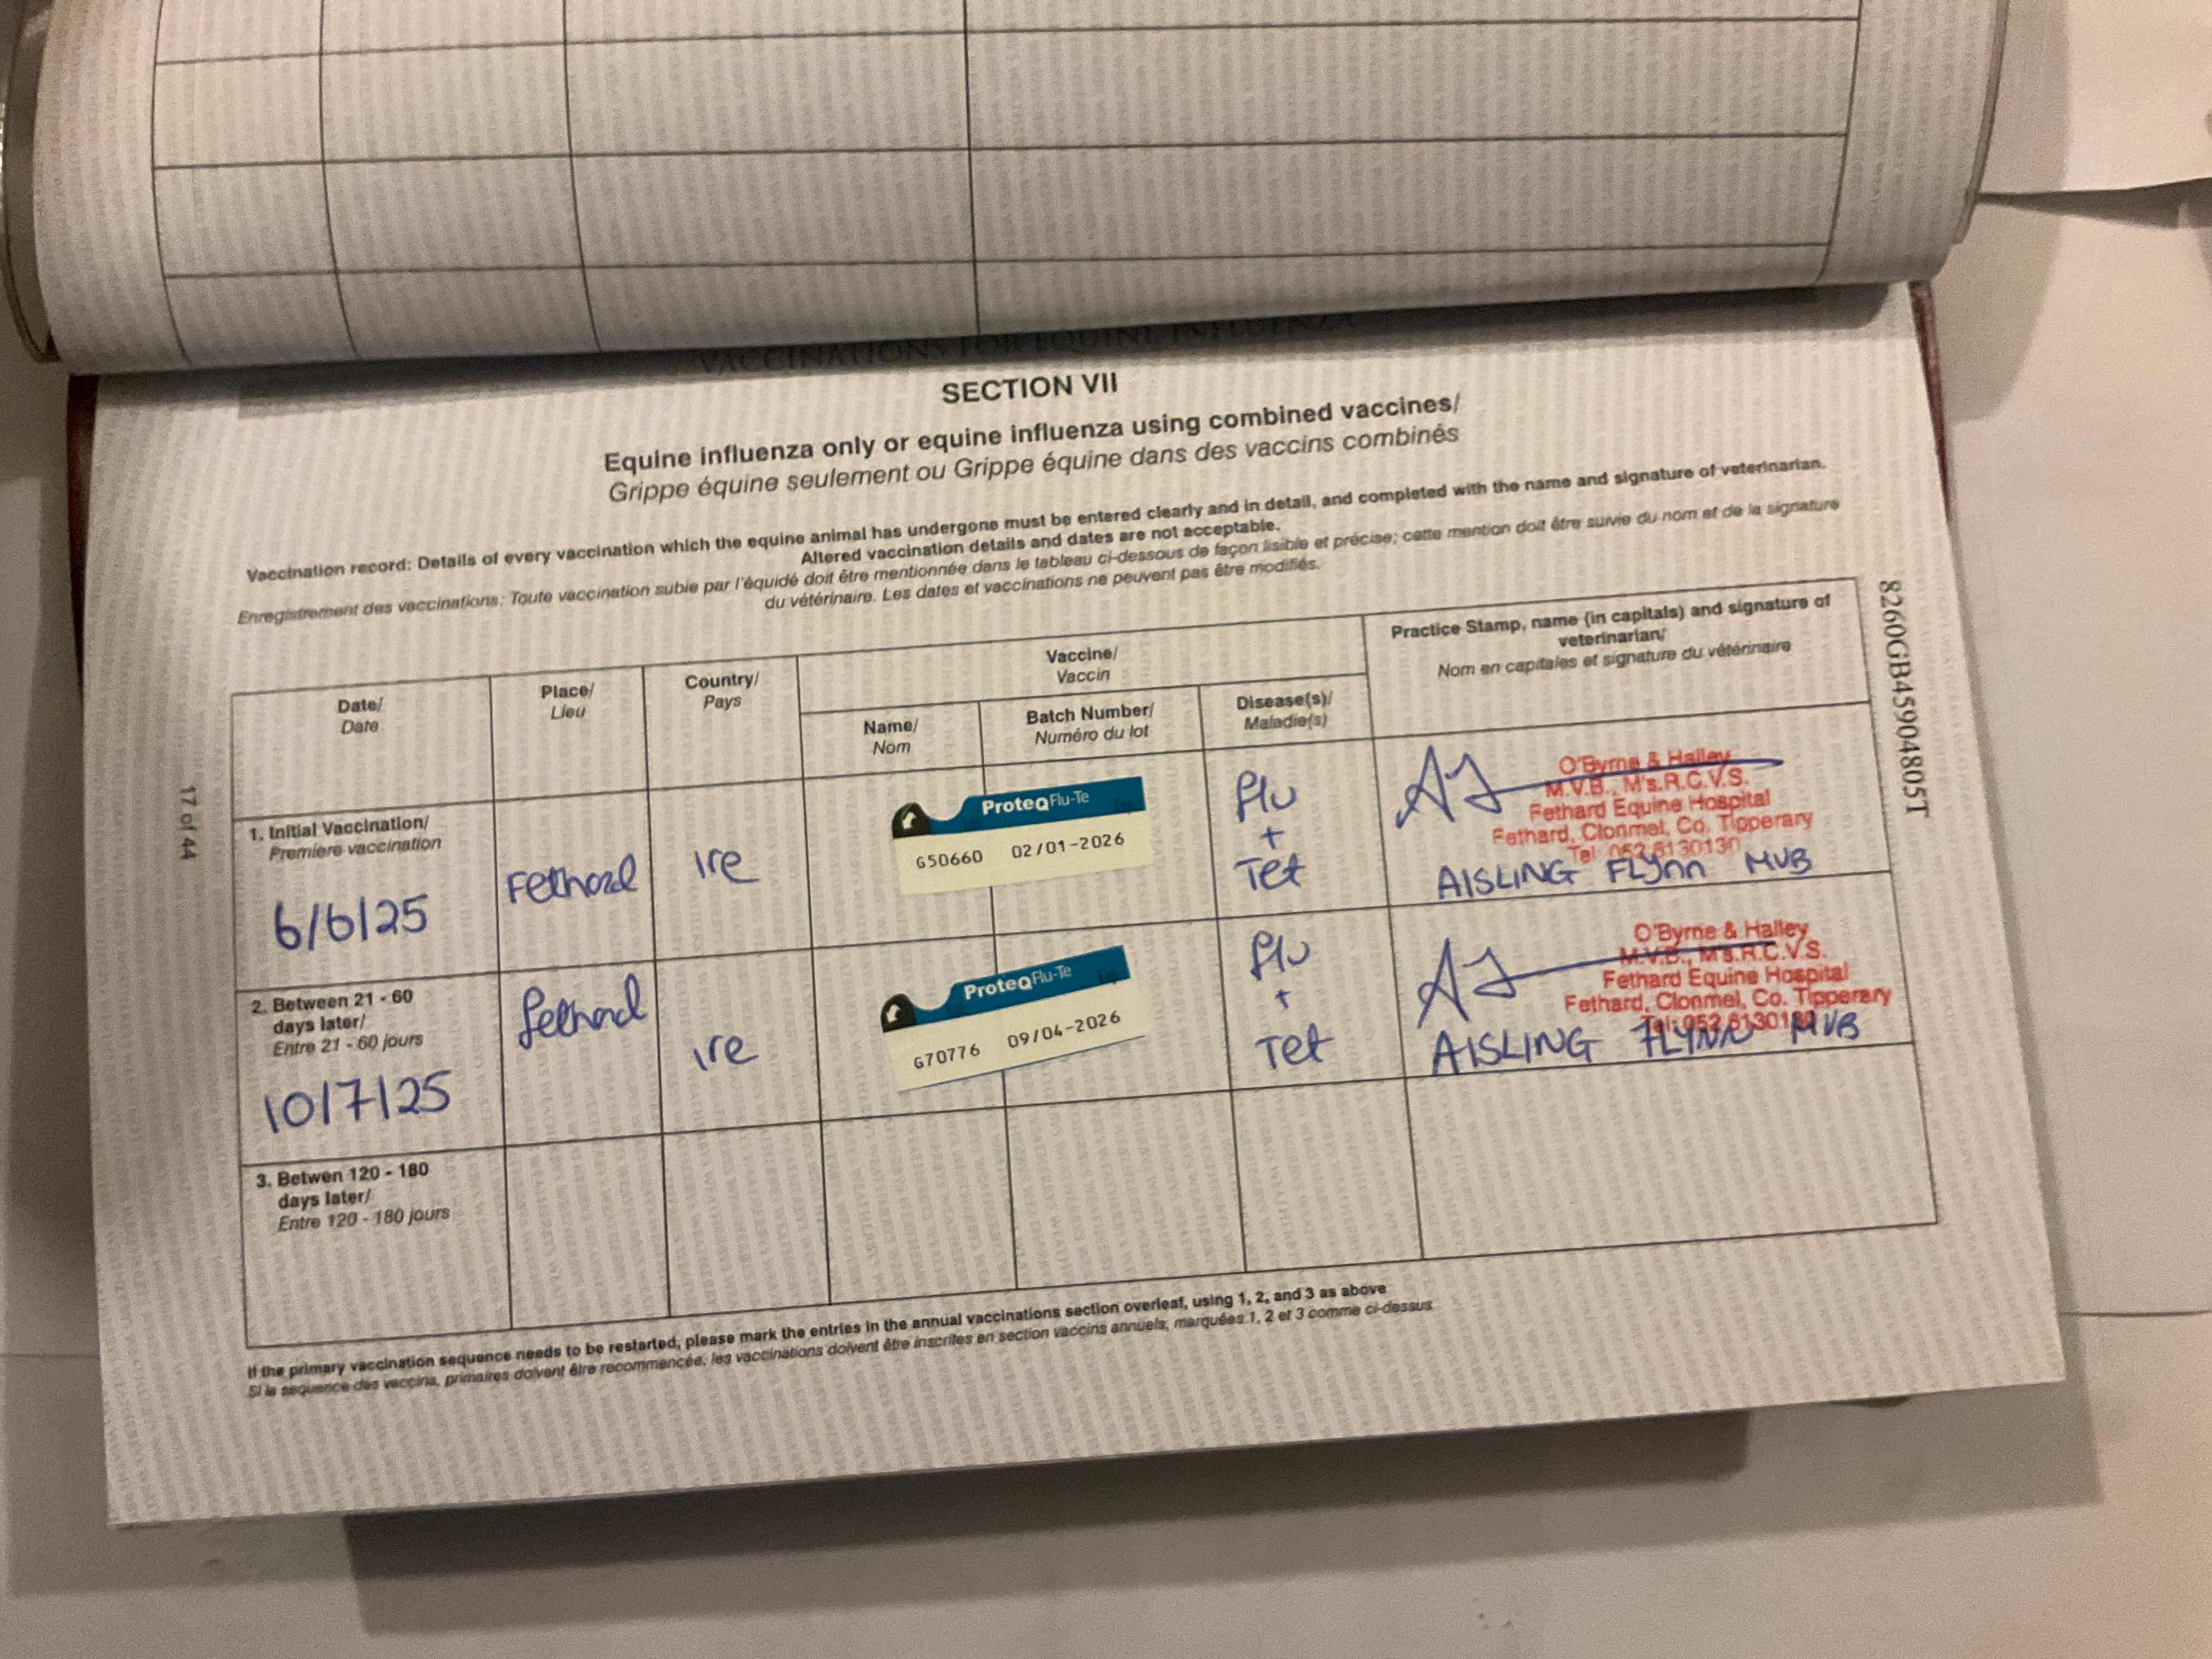 VACCINATIONS FOR EQUINE INFLUENZA
SECTION VII
Equine influenza only or equine influenza using combined vaccines/
Grippe équine seulement ou Grippe équine dans des vaccins combinés
Vaccination record: Details of every vaccination which the equine animal has undergone must be entered clearly and in detail, and completed with the name and signature of veterinarian.
Altered vaccination details and dates are not acceptable.
Enregistrement des vaccinations: Toute vaccination subie par l'équidé doit être mentionnée dans le tableau ci-dessous de façon lisible et précise; cette mention doit être suivie du nom et de la signature
du vétérinaire. Les dates et vaccinations ne peuvent pas être modifiés.
Date/
Date
Place/
Lieu
Country/
Pays
Vaccine/
Vaccin
Name/
Nom
Batch Number/
Numéro du lot
Disease(s)/
Maladie(s)
Practice Stamp, name (in capitals) and signature of
veterinarian/
Nom en capitales et signature du vétérinaire
1. Initial Vaccination/
Premiere vaccination
6/6/25
Fethard
Ire
ProteqFlu-Te
G50660 02/01-2026
Flu
+
Tet
O'Byrne & Halley
M.V.B., M's.R.C.V.S.
Fethard Equine Hospital
Fethard, Clonmel, Co. Tipperary
Tel: 052 6130130
AISLING FLYNN MVB
2. Between 21 - 60
days later/
Entre 21 - 60 jours
10/7/25
Fethard
Ire
ProteqFlu-Te
G70776 09/04-2026
Flu
+
Tet
O'Byrne & Halley
M.V.B., M's.R.C.V.S.
Fethard Equine Hospital
Fethard, Clonmel, Co. Tipperary
Tel: 052 613013
AISLING FLYNN MVB
3. Betwen 120 - 180
days later/
Entre 120 - 180 jours
If the primary vaccination sequence needs to be restarted, please mark the entries in the annual vaccinations section overleaf, using 1, 2, and 3 as above
Si la sequence des vaccins, primaires doivent être recommencée, les vaccinations doivent être inscrites en section vaccins annuels, marquées 1, 2 et 3 comme ci-dessus.
17 of 44
8260GB45904805T